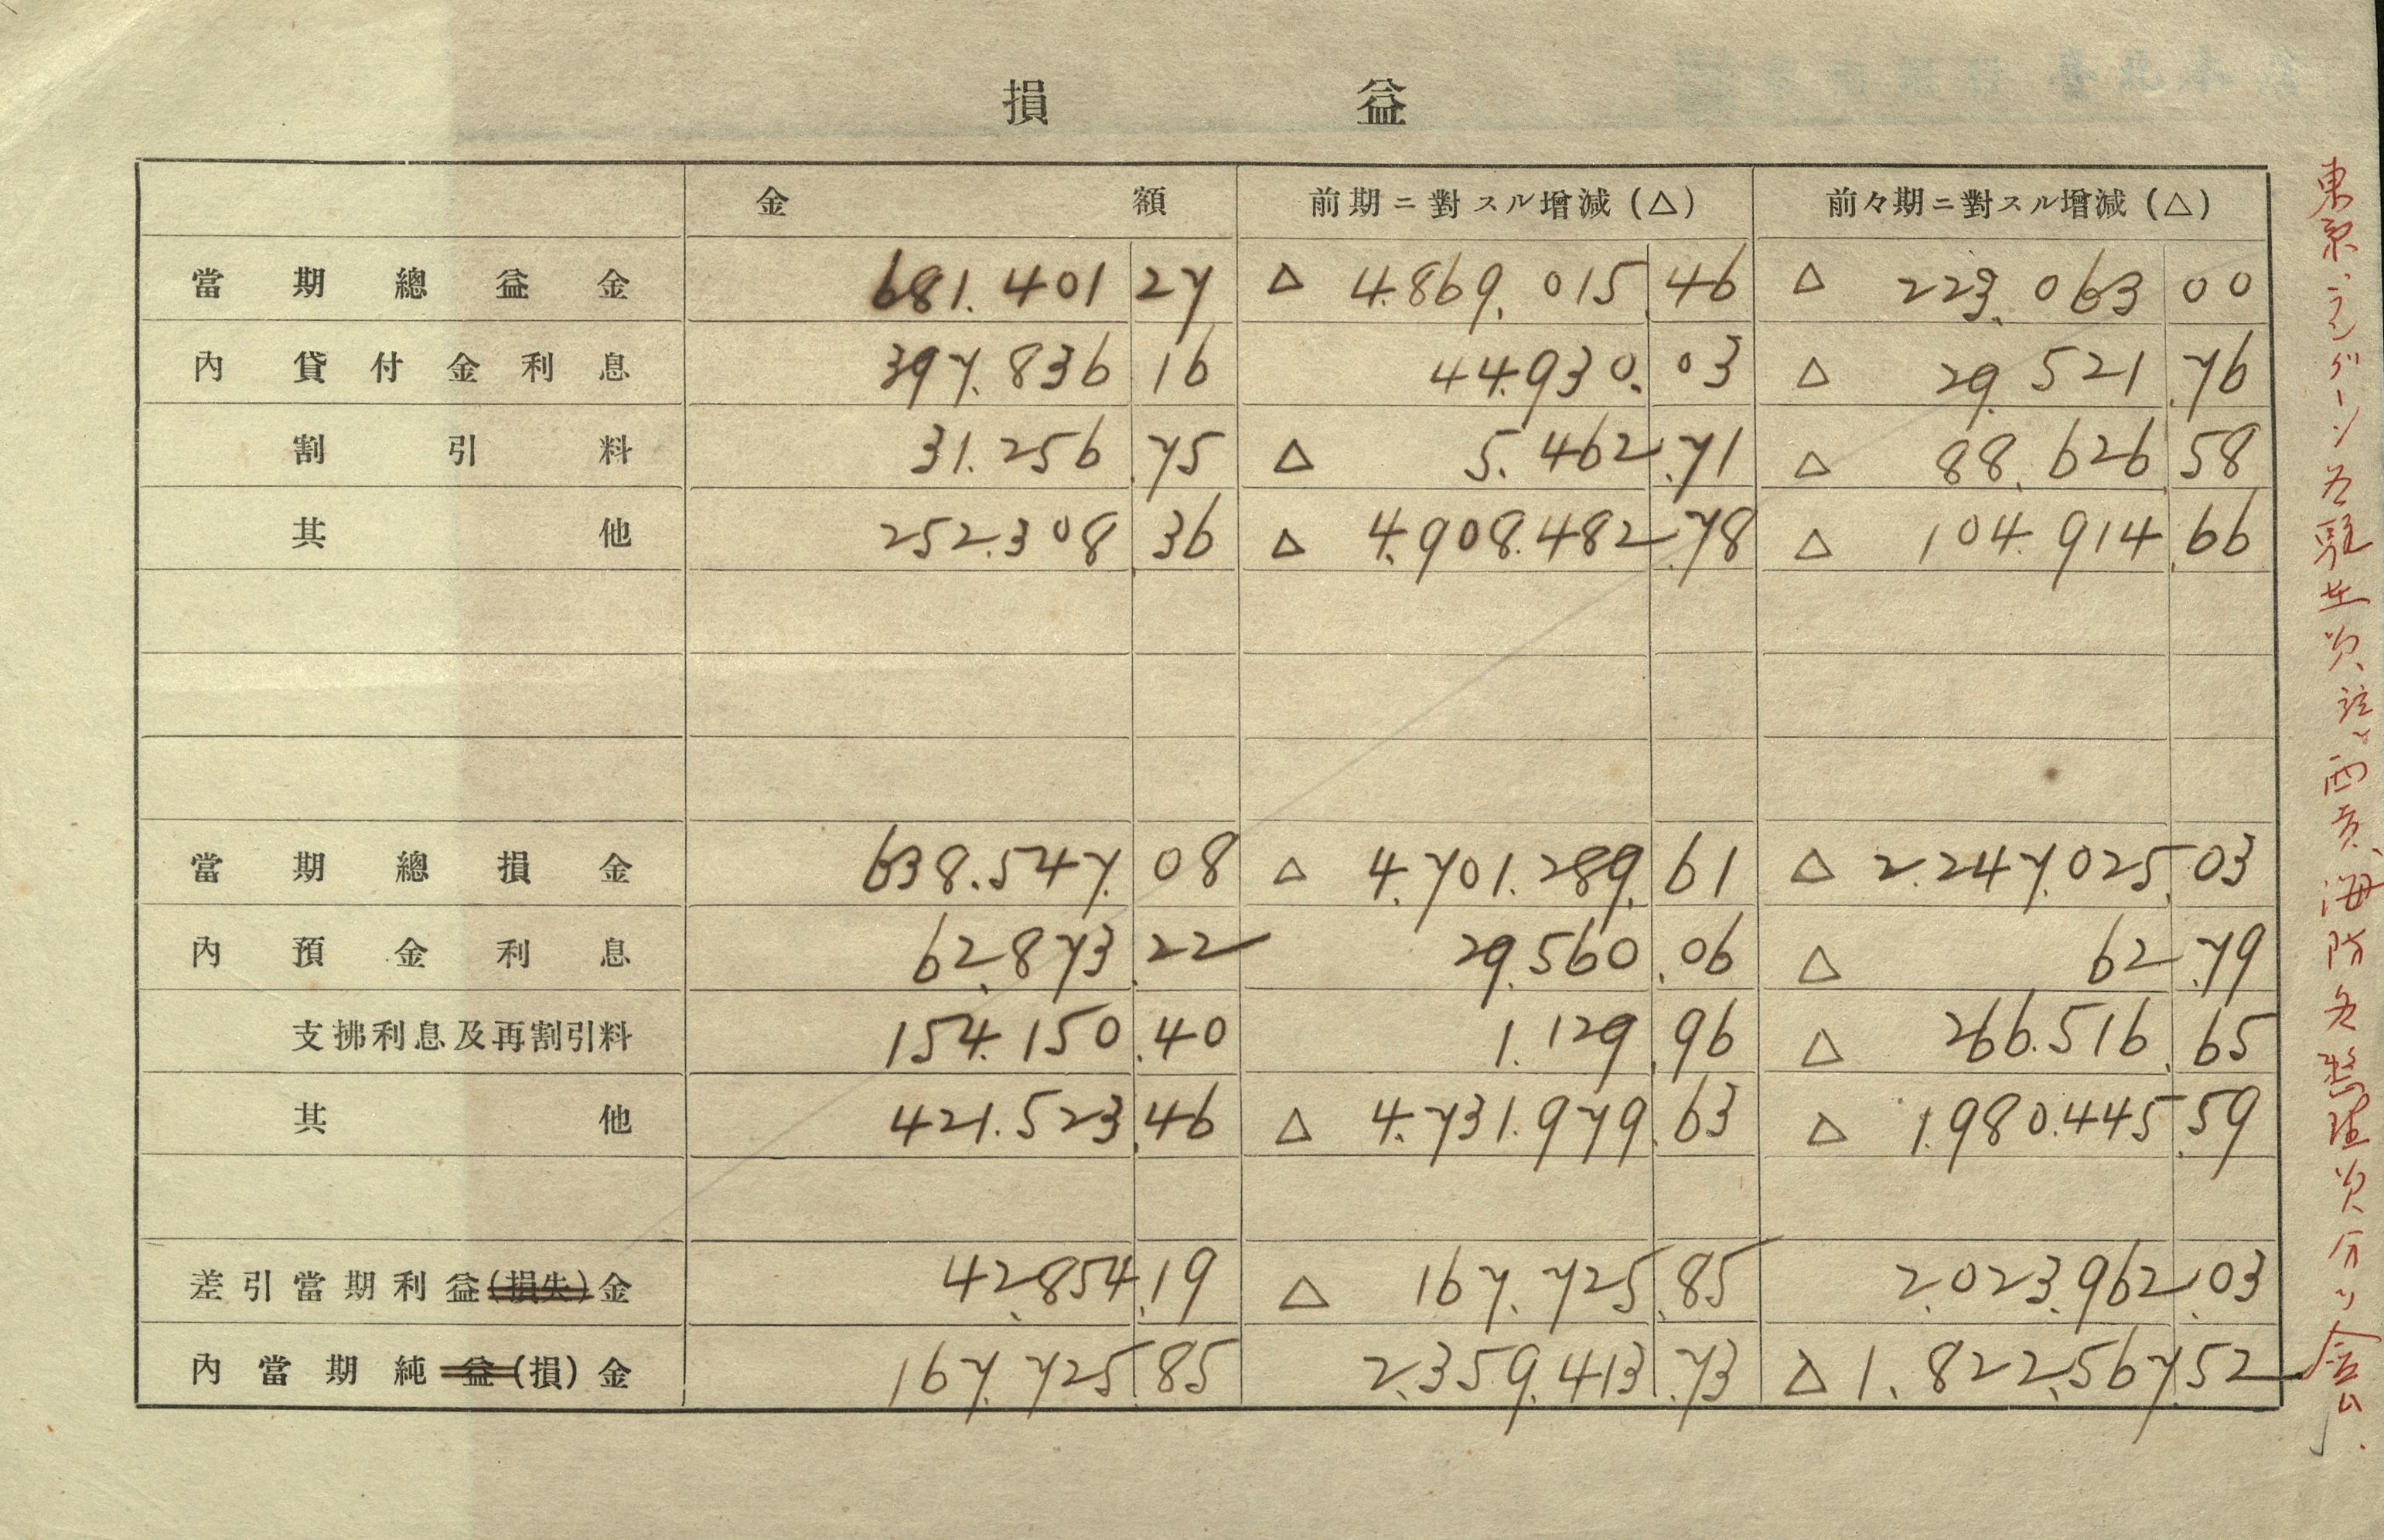 損益
金額 前期ニ對スル增減(△) 前々期ニ對スル增減(△)
當期總益金 681.401 27 △ 4.869.015.46 △ 223.063 00
內 貸付金利息 397.836 16 44.930.03 △ 29.521.76
割引料 31.256.75 △ 5.462.71 △ 88.626.58
其他 252.308.36 △ 4.908.482.78 △ 104.914.66
當期總損金 638.547.08 △ 4.701.289.61 △ 2.247.025.03
內 預金利息 62.873.22 29.560.06 △ 62.79
支拂利息及再割引料 154.150.40 1.129.96 △ 266.516.65
其他 421.523.46 △ 4.731.979.63 △ 1.980.445.59
差引當期利益(損失)金 42.854.19 △ 167.725.85 2.023.962.03
內當期純益(損)金 167.725.85 2.359.413.73 △ 1.822.567.52
東京、ラングーン 駐在員 西貢、海防 員分 含ム.